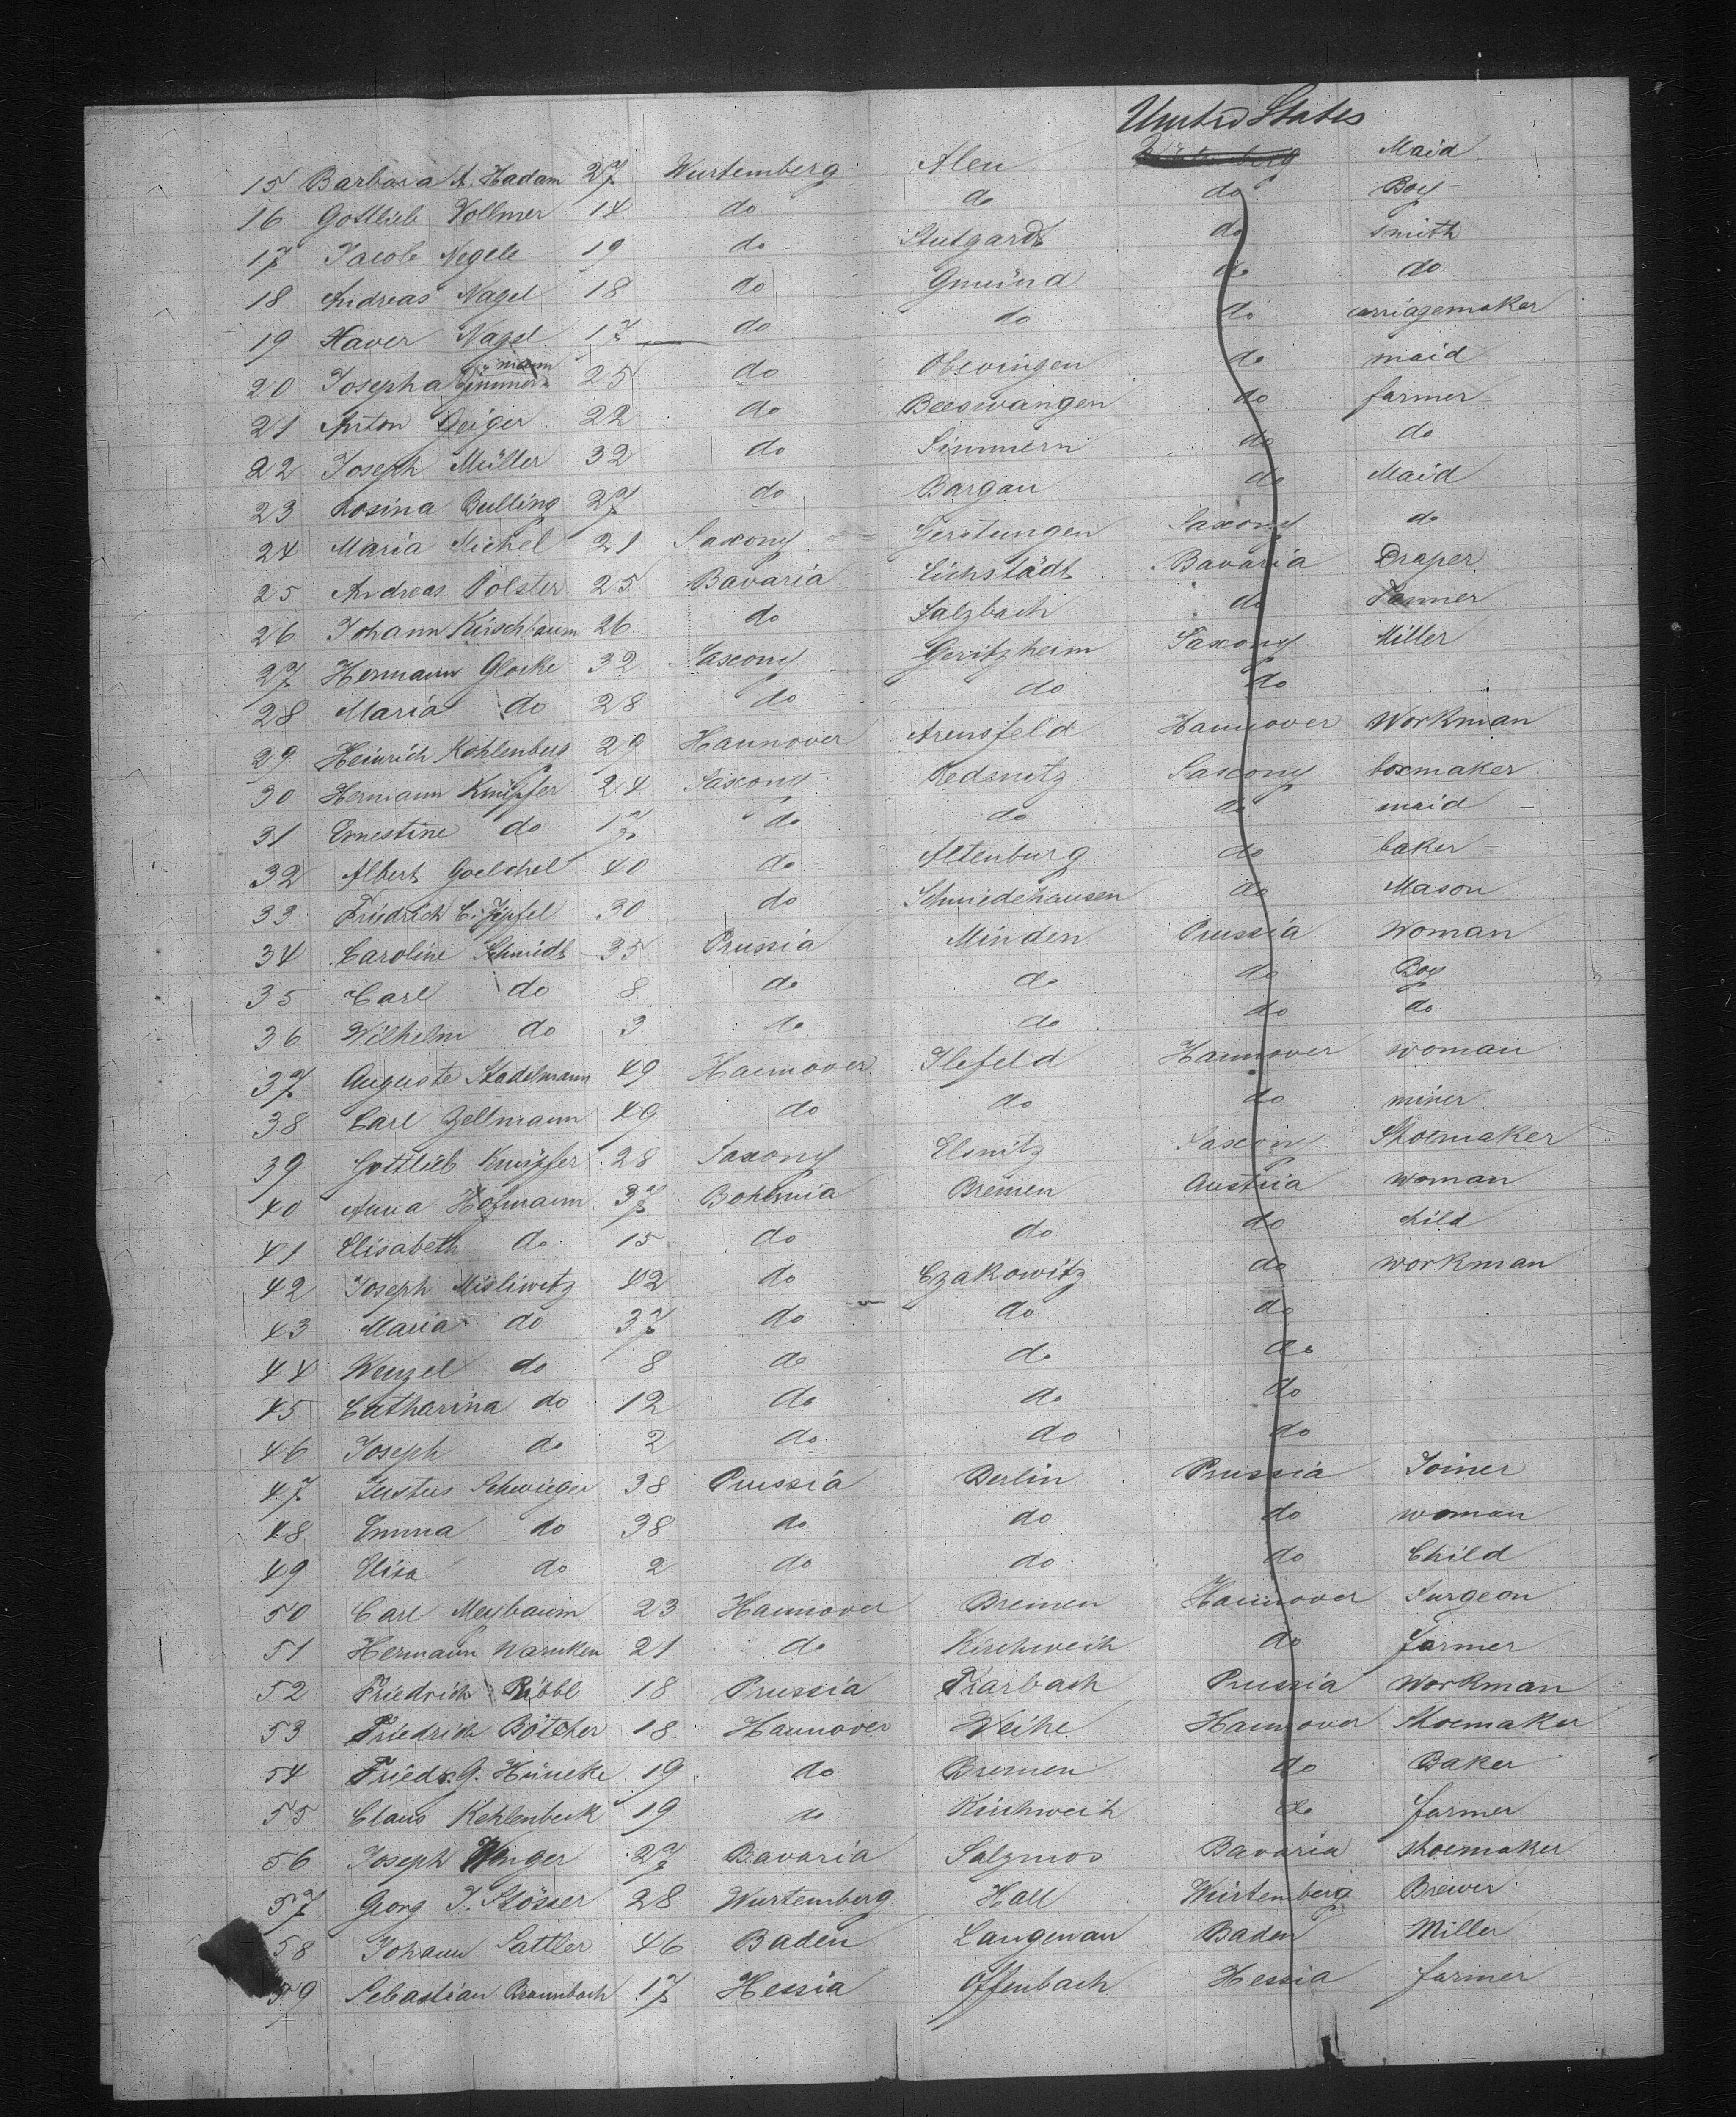 United States
15 Barbara A. Hadam 27 Wurtemberg Alen Maid
16 Gottlieb Vollmer 14 do do do Boy
17 Jacob Negele 19 do Stutgardt do smith
18 Andreas Nagel 18 do Gmuünd do do
19 Xaver Nagel 17 do do do carriagemaker
20 Josepha mann 25 do Obevingen do maid
21 Anton Geiger 22 do Beeswangen do farmer
22 Joseph Müller 32 do Simmern do do
23 Rosina Bulling 27 do Bargau do Maid
24 Maria Michel 21 Saxony Gerstungen Saxony do
25 Andreas Polster 25 Bavaria Eichstädt Bavaria Draper
26 Johann Kirschbaum 26 do Salzbach do
27 Hermann Glocke 32 Saxony Geritzheim Saxony Miller
28 Maria do 28 do do do
29 Heinrich Kohlenberg 29 Hannover Arensfeld Hannover Workman
30 Hermann Knüpfer 24 Saxony Redenitz Saxony boxmaker
31 Ernestine do 17 do do do maid
32 Albert Goelchel 40 do Altenburg do baker
33 Friedrich C. Zipfel 30 do Schmiedehausen do Mason
34 Caroline Schmidt 35 Prussia Minden Prussia Woman
35 Carl do 8 do do do Boy
36 Wilhelm do 3 do do do do
37 Auguste Stadelmann 49 Hannover Ilefeld Hannover woman
38 Carl Gellmann 49 do do do miner
39 Gottlieb Knüpfer 28 Saxony Elsnitz Saxony Shoemaker
40 Anna Hofmann 37 Bohemia Bremen Austria woman
41 Elisabeth do 15 do do do child
42 Joseph Misliwetz 42 do Czakowitz do workman
43 Maria do 37 do do do
44 Wenzel do 8 do do do
45 Catharina do 12 do do do
46 Joseph do 2 do do do
47 Justus Schwieger 38 Prussia Berlin Prussia Joiner
48 Emma do 38 do do do woman
49 Elisa do 2 do do do Child
50 Carl Meybaum 23 Hannover Bremen Hannover Surgeon
51 Hermann Warnken 21 do Kirchweih do farmer
52 Friedrich Röbbl 18 Prussia Trarbach Prussia Workman
53 Friedrich Bötcher 18 Hannover Weihe Hannover Shoemaker
54 Friedr. G. Hüneke 19 do Bremen do Baker
55 Claus Kehlenbeck 19 do Kirchweih do farmer
56 Joseph Wenger 27 Bavaria Salzmos Bavaria Shoemaker
57 Georg J. Stösser 28 Wurtemberg Hall Würtemberg Brewer
58 Johann Sattler 46 Baden Langenau Baden Miller
59 Sebastian Braunbach 17 Hessia Offenbach Hessia farmer